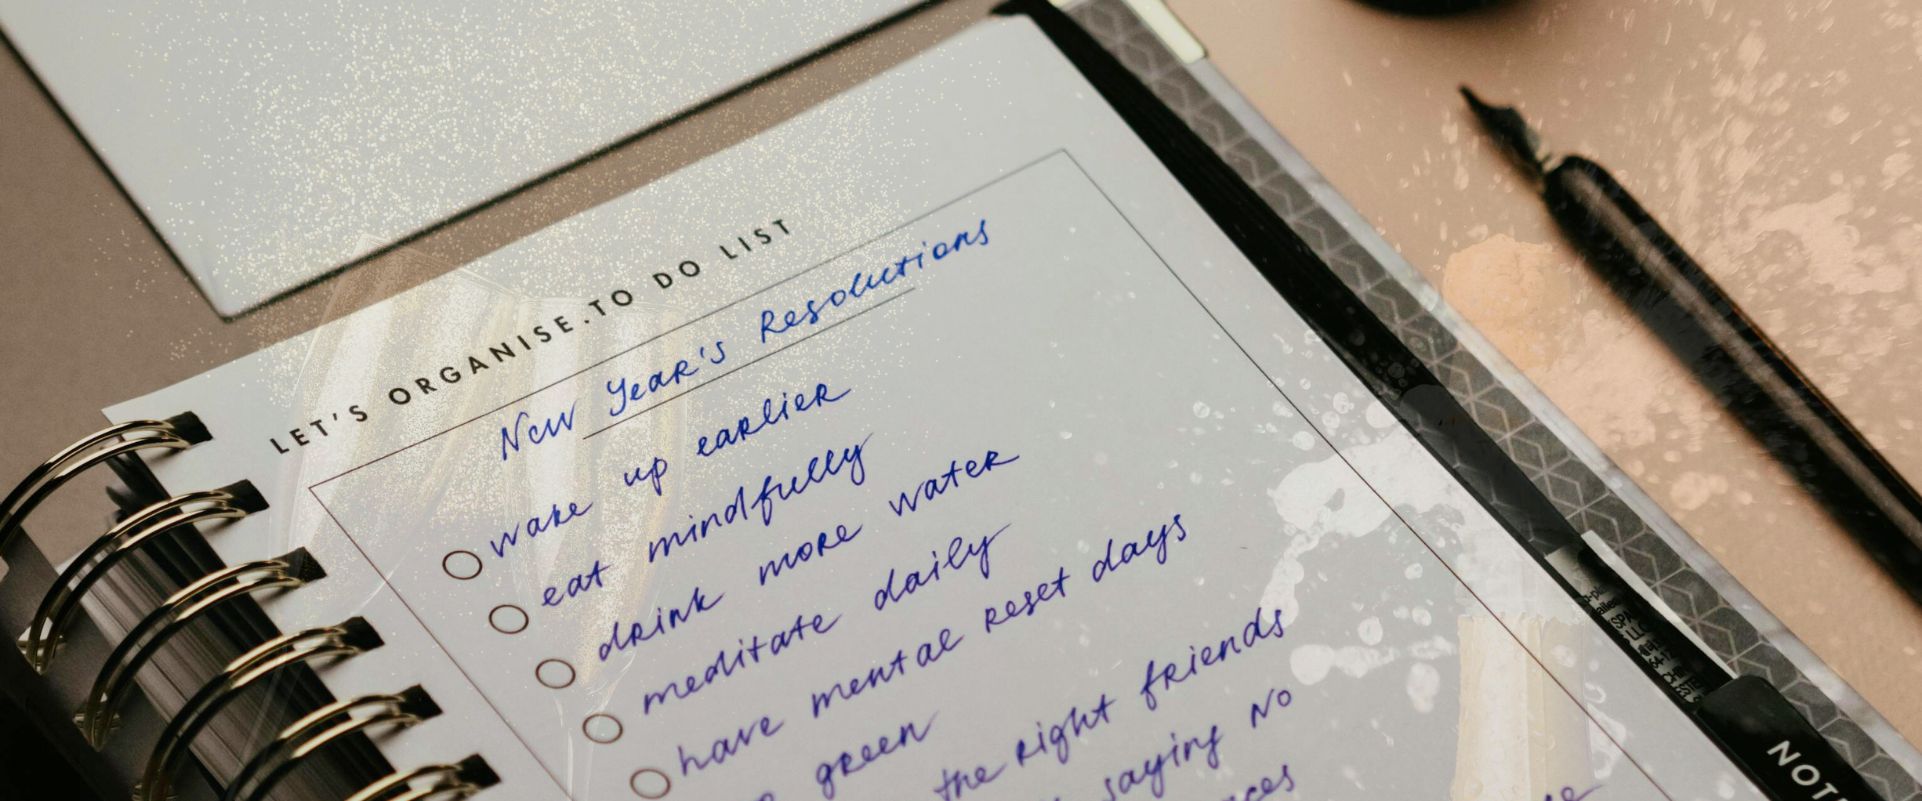 LET'S ORGANISE.TO DO LIST
New Year's Resolutions
wake up earlier
eat mindfully
drink more water
meditate daily
have mental reset days
green
the right friends
saying No
NOT